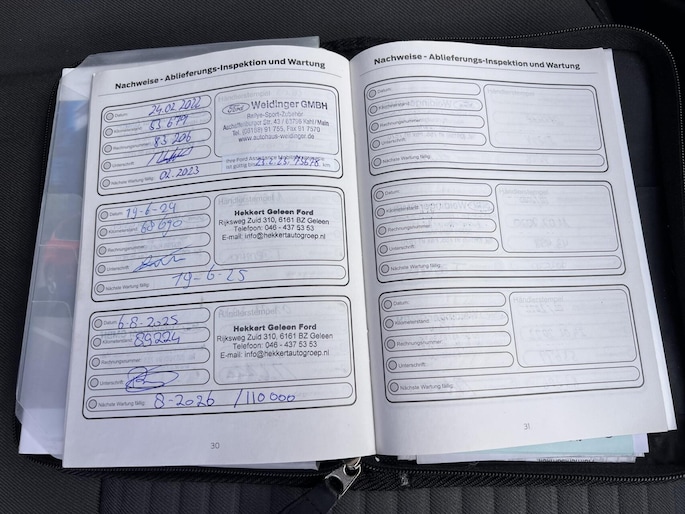 Nachweise - Ablieferungs-Inspektion und Wartung
Datum: 24.02.2022
Kilometerstand: 53 679
Rechnungsnummer: 83 206
Unterschrift:
Nächste Wartung fällig: 02.2023
Händlerstempel
Ford Weidinger GMBH
Rallye-Sport-Zubehör
Aschaffenburger Str. 43 / 63796 Kahl/Main
Tel. (06188) 91 755, Fax 81 7570
www.autohaus-weidinger.de
Ihre Ford Assistance Mobilitätsgarantie
ist gültig bis km
Datum: 19-6-24
Kilometerstand:
Rechnungsnummer:
Unterschrift:
Nächste Wartung fällig:
19-6-25
Hekkert Geleen Ford
Rijksweg Zuid 310, 6161 BZ Geleen
Telefoon: 046 - 437 53 53
E-mail: info@hekkertautogroep.nl
Datum: 6-8-2025
Kilometerstand: 89224
Rechnungsnummer:
Unterschrift:
Nächste Wartung fällig: 8-2026 /110 000
Händlerstempel
Hekkert Geleen Ford
Rijksweg Zuid 310, 6161 BZ Geleen
Telefoon: 046 - 437 53 53
E-mail: info@hekkertautogroep.nl
30
Nachweise - Ablieferungs-Inspektion und Wartung
Datum:
Kilometerstand:
Rechnungsnummer:
Unterschrift:
Nächste Wartung fällig:
Händlerstempel
Datum:
Kilometerstand:
Rechnungsnummer:
Unterschrift:
Nächste Wartung fällig:
Händlerstempel
Datum:
Kilometerstand:
Rechnungsnummer:
Unterschrift:
Nächste Wartung fällig:
Händlerstempel
31